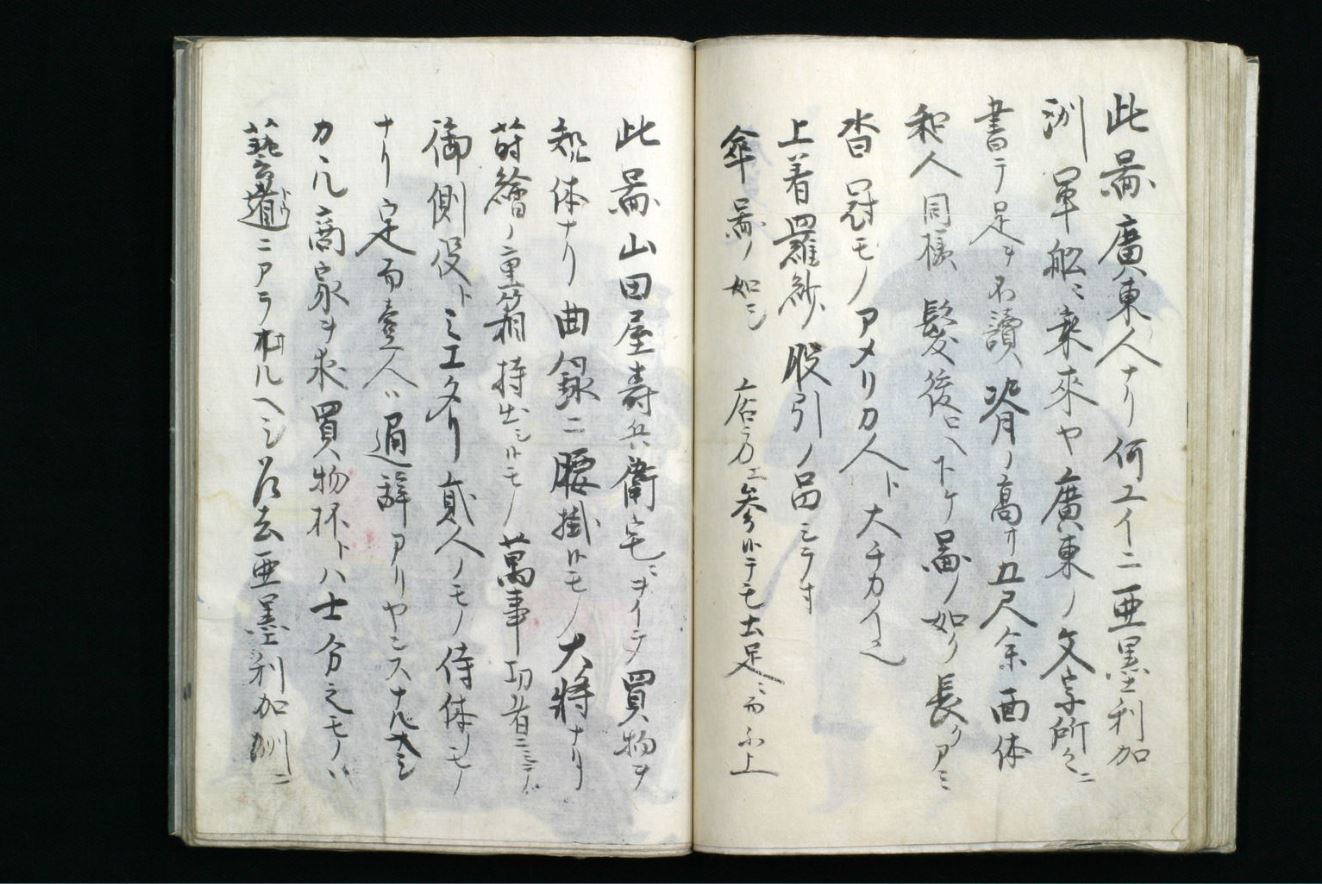 此啚廣東人ナリ何エイニ亜墨利加
洲軍舩ニ乗来ヤ廣東ノ文字所々ニ
書テ足ヲ不讀脊ノ高サ五尺余面体
和人同様髪後ロヘ下ケ啚ノ如ク長クアミ
沓冠モノアメリカ人ト大チカイ也
上着羅紗股引ノ品シラす
傘啚ノ如シ 店方エ参リテモ土足ニ而上
此啚山田屋壽兵衛宅ニヲイテ買物ヲ
体ナリ曲录ニ腰掛ルモノ大将ナリ
蒔繪ノ重箱持出シルモノ萬事功者ニシテ
御側役トミエタリ貮人ノモノ侍体ノモノ
ナリ足而壹人ハ通辞アリヤシス
カ凡商家ヲ求買物杯トハ士分之モノハ
藝道ニアラ相ルヘシ亜墨利加洲ニ